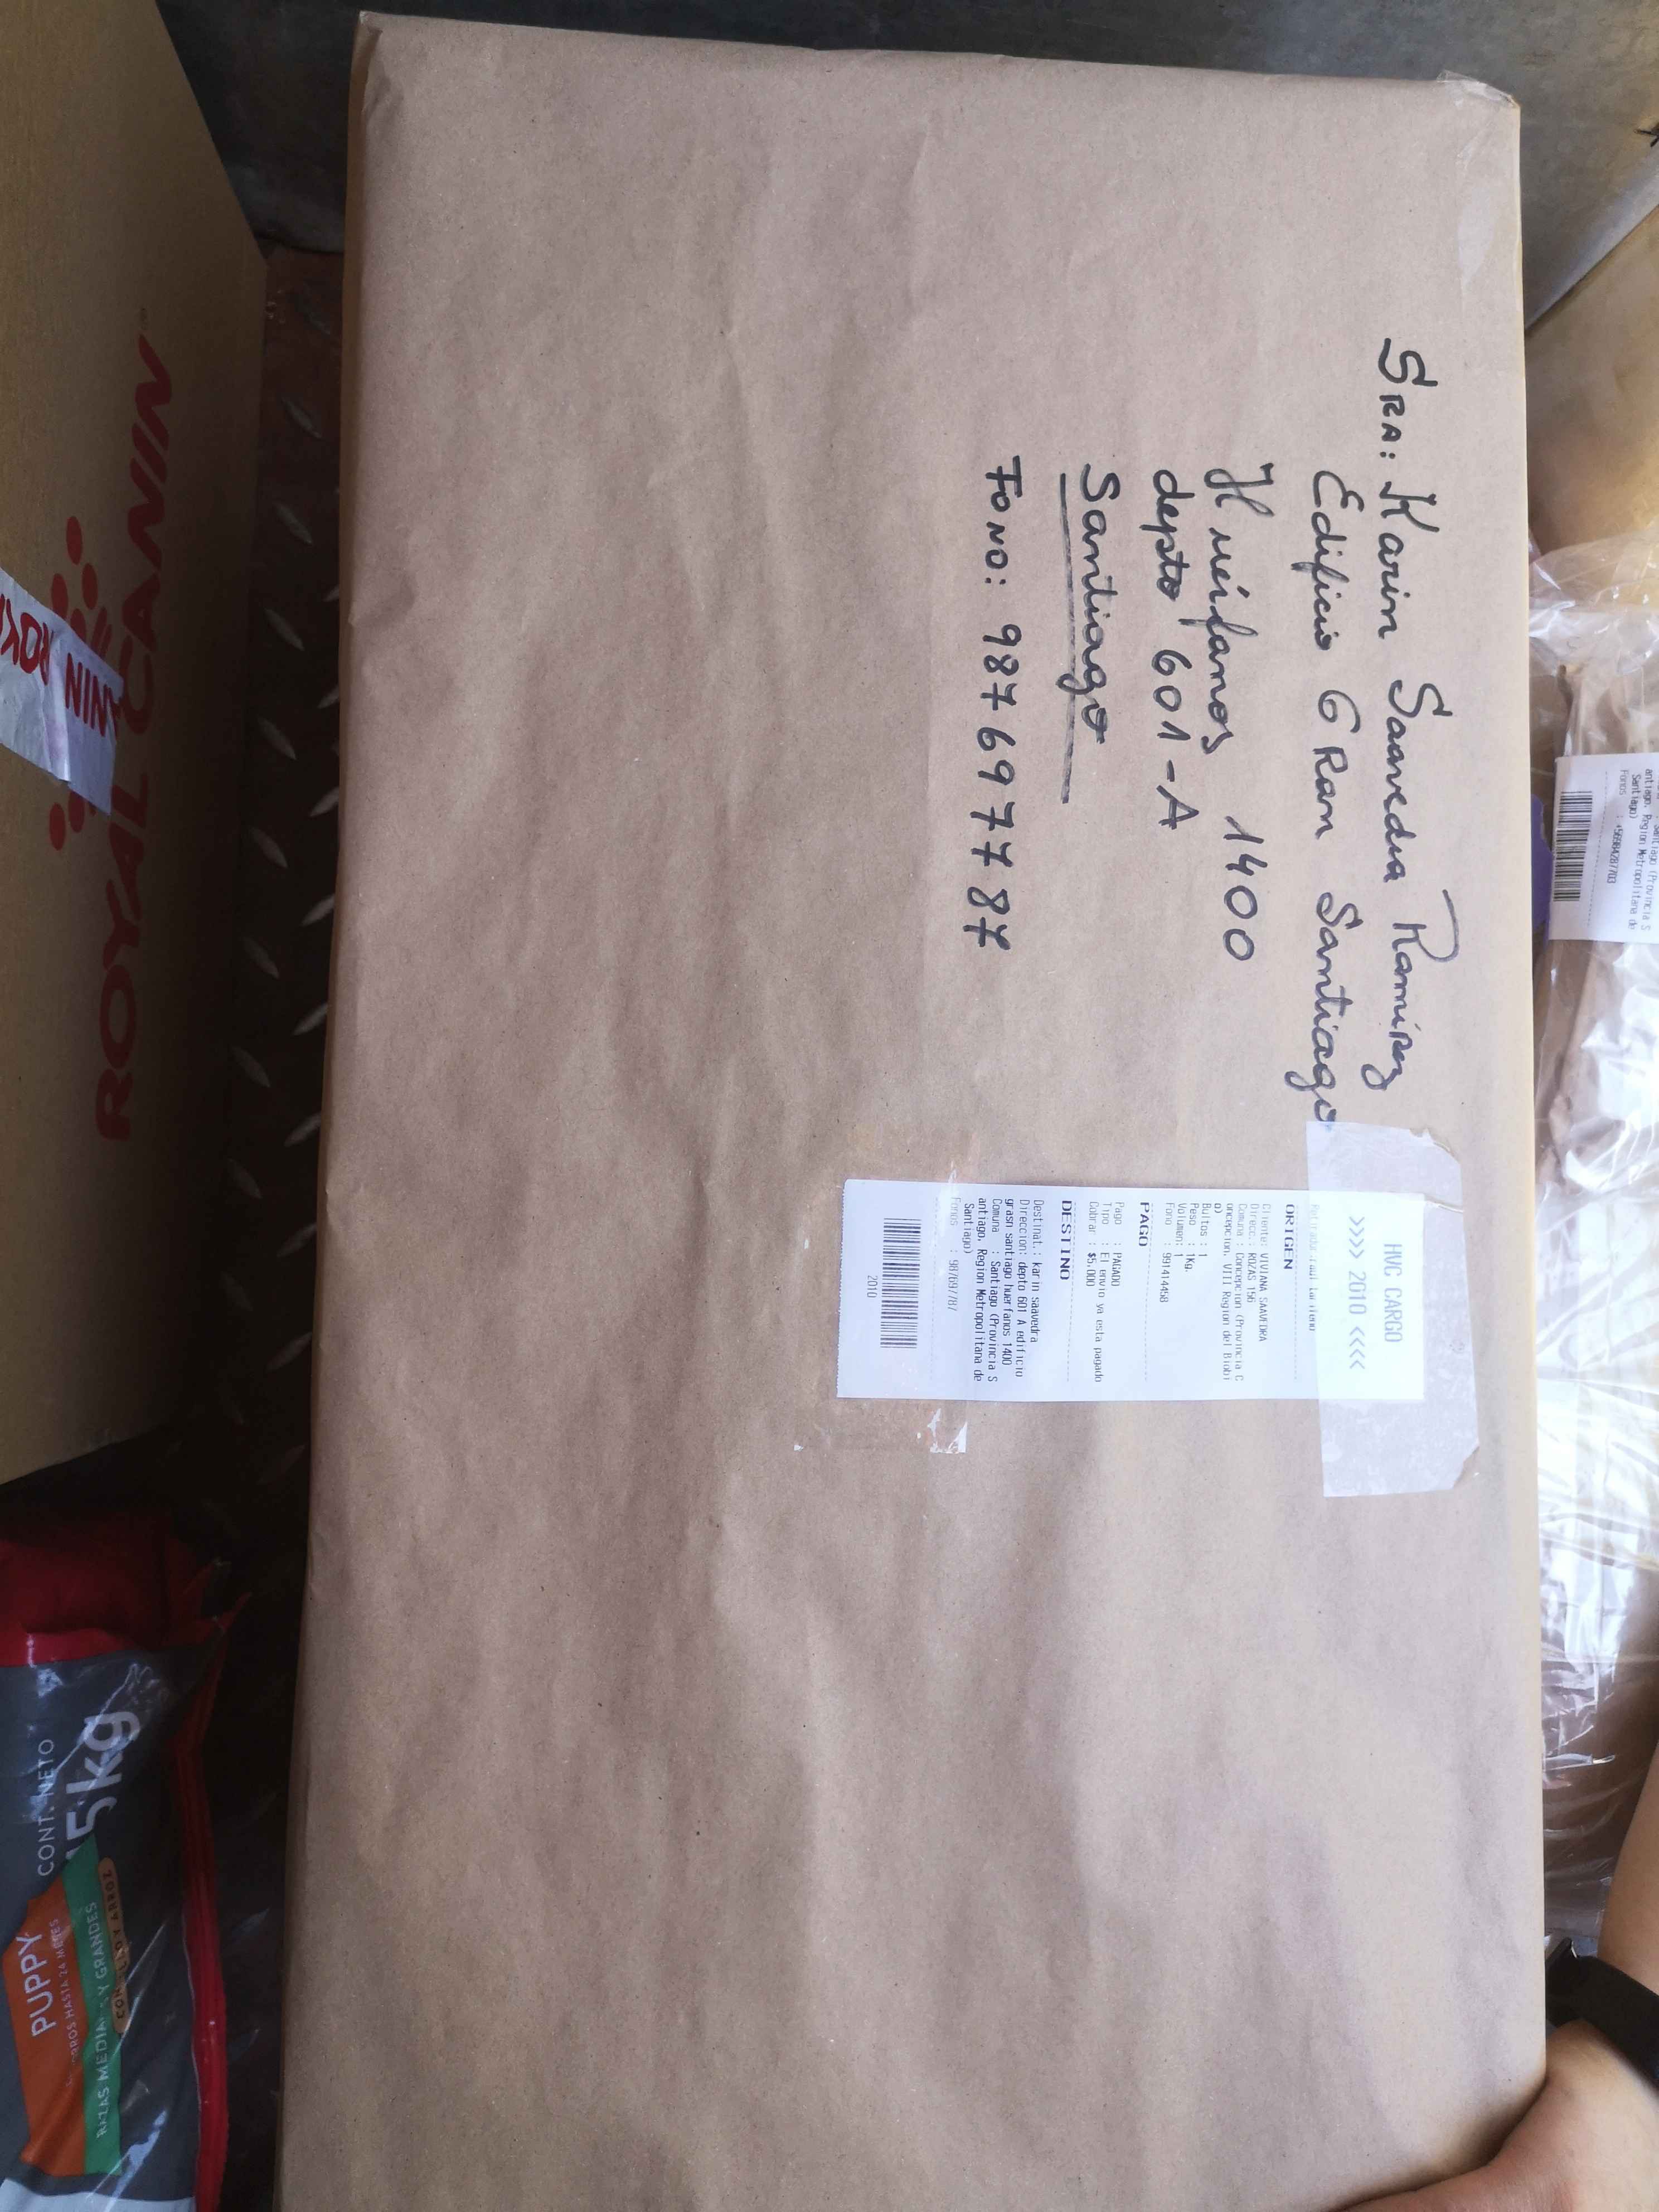 SRA: Karin Saavedra Ramírez
Edificio GRan Santiago
Huérfanos 1400
depto 601-A
Santiago
FONO: 987697787
HVC CARGO
>>>> 2010 <<<<
ORIGEN
Cliente: VIVIANA SAAVEDRA
Direcc.: ROZAS 156
Comuna : Concepcion (Provincia C
oncepcion, VIII Region del Biobi
o)
Bultos : 1
Peso : 1Kg.
Volumen: 1
Fono : 991414458
PAGO
Pago : PAGADO
Tipo : El envio ya esta pagado
Cobrar : $5.000
DESTINO
Destinat.: karin saavedra
Direccion: depto 601 A edificio
grasn santiago huerfanos 1400
Comuna : Santiago (Provincia S
antiago, Region Metropolitana de
Santiago)
Fonos : 987697787
2010
ROYAL CANIN
CONT. NETO
15kg
PUPPY
RAZAS MEDIANAS Y GRANDES
antiago, Region Metropolitana de
Santiago)
Fonos : +56984287703